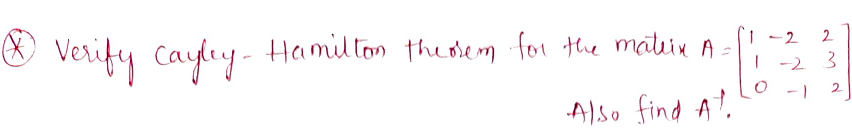 * Verify Cayley-Hamilton theorem for the matrix A = [1 -2 2
1 -2 3
0 -1 2]
Also find A⁻¹.